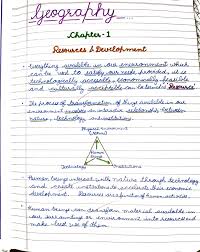 Geography
Chapter - 1
Resources & Development
Everything available in our environment which
can be used to satisfy our needs provided, it is
technologically accessible, economically feasible
and culturally acceptable can be termed as Resource
The process of transformation of things available in our
environment involves an interactive relationship between
nature, technology and institutions.
Physical Environment
(Nature)
Technology
Institutions
Human beings interact with nature through technology
and create institutions to accelerate their economic
development. Resources are a function of human activities.
Human beings can transform material available in
our surrounding or environment into resources and
make use of them.